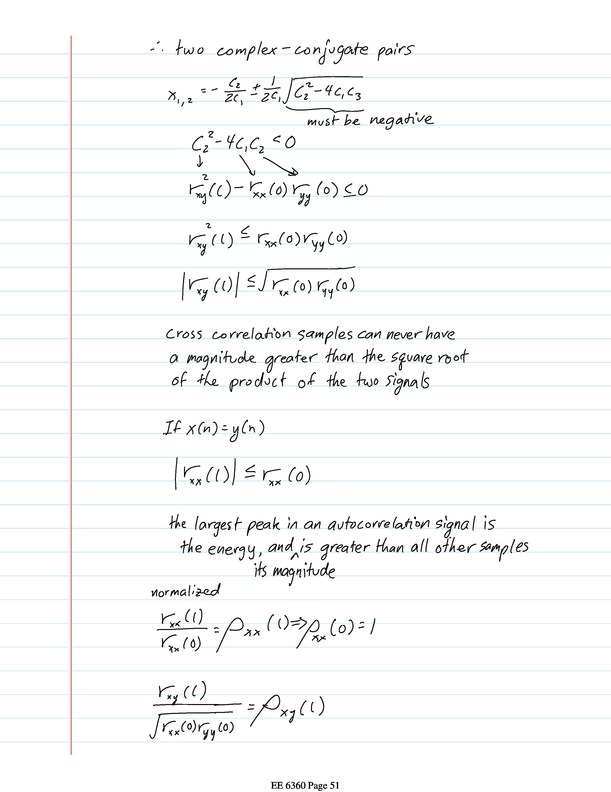 ∴ two complex-conjugate pairs
x₁,₂ = - C₂/2C₁ ± 1/2C₁ √(C₂² - 4C₁C₃)
must be negative
C₂² - 4C₁C₂ < 0
↓ ↘ ↘
r_xy²(l) - r_xx(0) r_yy(0) ≤ 0
r_xy²(l) ≤ r_xx(0) r_yy(0)
|r_xy(l)| ≤ √(r_xx(0) r_yy(0))
Cross correlation samples can never have
a magnitude greater than the square root
of the product of the two signals
If x(n) = y(n)
|r_xx(l)| ≤ r_xx(0)
the largest peak in an autocorrelation signal is
the energy, and ^ is greater than all other samples
its magnitude
normalized
r_xx(l)/r_xx(0) = ρ_xx(l) ⇒ ρ_xx(0) = 1
r_xy(l)/√(r_xx(0) r_yy(0)) = ρ_xy(l)
EE 6360 Page 51